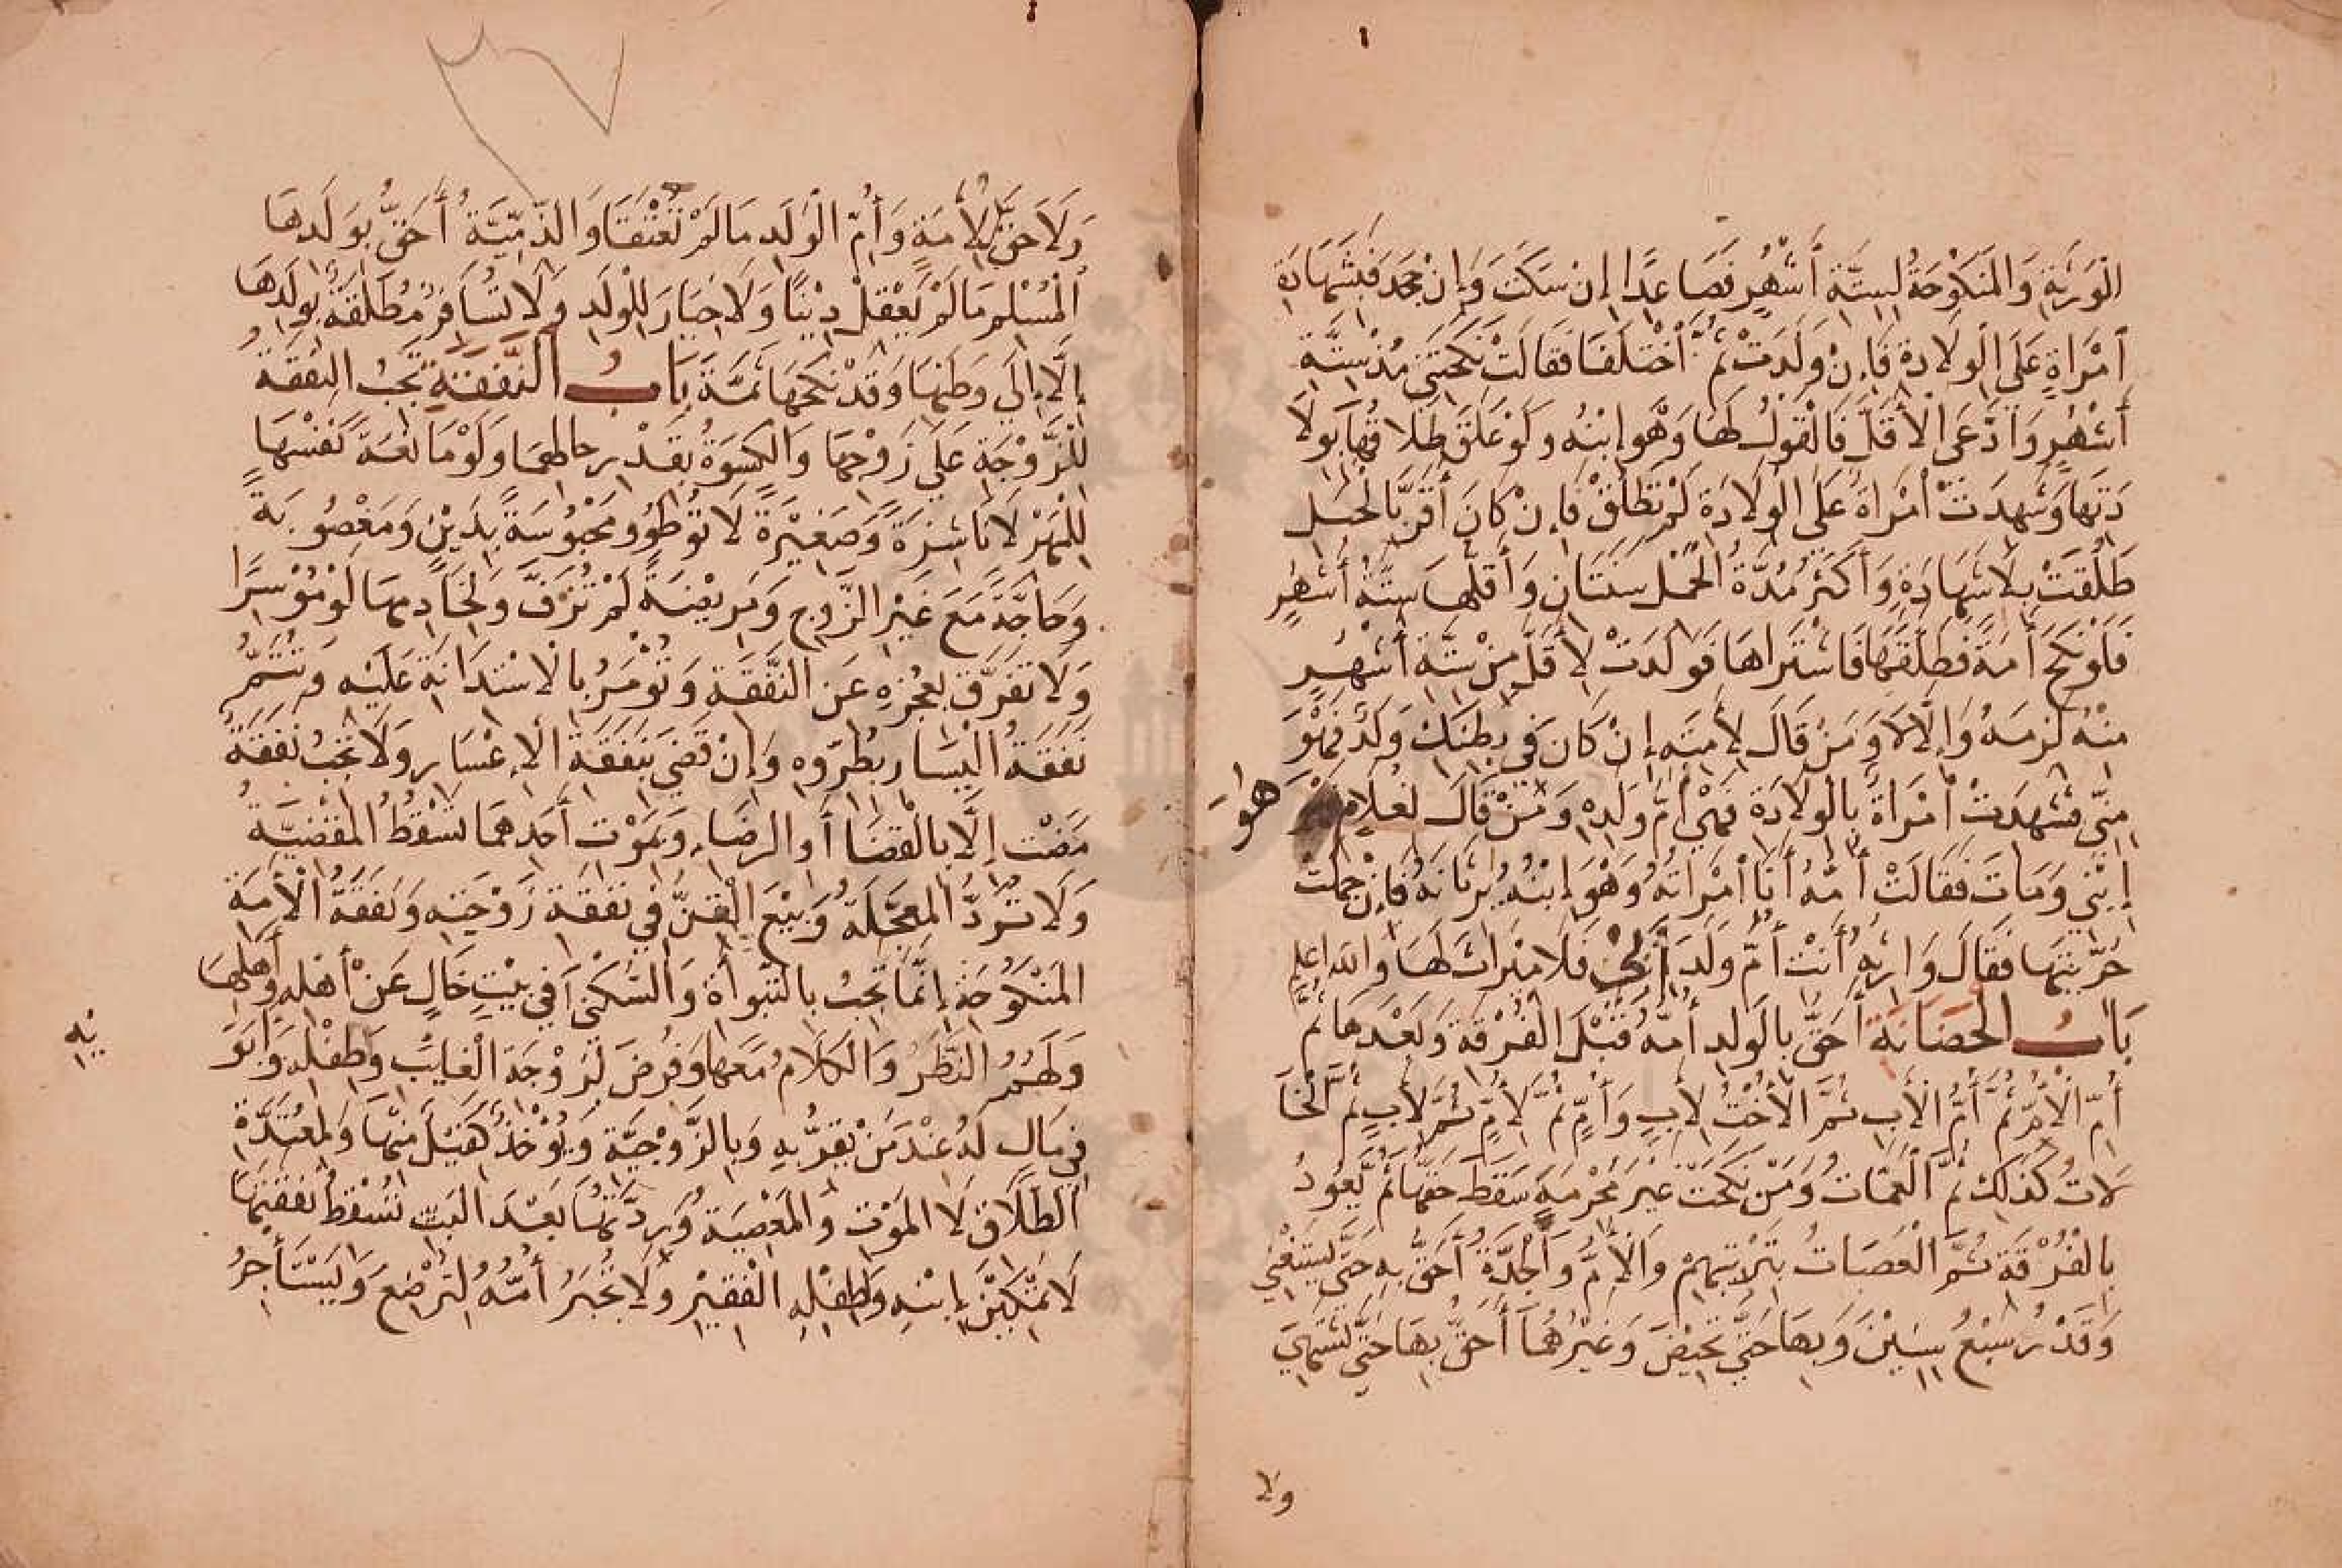 الْوَرَثَةِ وَالْمَنكُوحَةُ لِسِتَّةِ أَشْهُرٍ فَصَاعِدًا إِن سَكَتَ وَإِنْ جَحَدَ فَبِشَهَادَةِ
اَمْرَأَةٍ عَلَى الْوِلَادَةِ فَإِنْ وَلَدَتْ ثُمَّ أَخْتَلَفَا فَقَالَتْ نَكَحْتَنِي مُذْ سِتَّةِ
أَشْهُرٍ وَاَدَّعَى الْأَقَلَّ فَالْقَوْلُ لَهَا وَهْوَ إِبْنُهُ وَلَوْ عَلَّقَ طَلَاقَهَا بِوِلَا
دَتِهَا وَشَهِدَتْ أَمْرَأَةٌ عَلَى الْوِلَادَةِ لَمْ تُطَلَّقْ فَإِنْ كَانَ أَقَرَّ بِالْحَبَلِ
طُلِّقَتْ بِلَا شَهَادَةٍ وَأَكْثَرُ مُدَّةُ الْحَمْلِ سَنَتَانِ وَأَقَلُّهَا سِتَّةُ أَشْهُرٍ
فَلَوْ نَكَحَ أَمَةً فَطَلَّقَهَا فَاشْتَرَاهَا فَوَلَدَتْ لِأَقَلَّ مِنْ سِتَّةِ أَشْهُرٍ
مِنْهُ لَزِمَهُ وَإِلَّا لَا وَمَنْ قَالَ لِأَمَتِهِ إِنْ كَانَ فِي بَطْنِكِ وَلَدٌ فَهْوَ
مِنِّي فَشَهِدَتْ أَمْرَأَةٌ بِالْوِلَادَةِ فَهْيَ أُمُّ وَلَدِهِ وَمَنْ قَالَ لِغُلَامٍ هُوَ
إِبْنِي وَمَاتَ فَقَالَتْ أُمُّهُ أَنَا أَمْرَأَتُهُ وَهْوَ إِبْنُهُ يَرِثَانَهُ فَإِنْ جُهِلَتْ
حُرِّيَّتُهَا فَقَالَ وَارِثُهُ أَنْتِ أُمُّ وَلَدِ أَبِي فَلَا مِيْرَاثَ لَهَا وَاللهُ اعلم
بَابُ الْحَضَانَةِ أَحَقُّ بِالْوَلَدِ أُمُّهُ قَبْلَ الْفُرْقَةِ وَبَعْدَهَا ثُمَّ
أُمُّ الْأُمِّ ثُمَّ أُمُّ الْأَبِ ثُمَّ الْأُخْتُ لِأَبٍ وَأُمٍّ ثُمَّ لِأُمٍّ ثُمَّ لِأَبٍ ثُمَّ الْخَا
لَاتُ كَذَلِكَ ثُمَّ الْعَمَّاتُ وَمَنْ نَكَحَتْ غَيْرَ مَحْرَمِهِ سَقَطَ حَقُّهَا ثُمَّ يَعُودُ
بِالْفُرْقَةِ ثُمَّ الْعَصَبَاتُ بِتَرْتِيبِهِمْ وَالْأُمُّ وَالْجَدَّةُ أَحَقُّ بِهِ حَتَّى يَسْتَغْنِيَ
وَقُدِّرَ سَبْعُ سِنِيْنَ وَبِهَا حَتَّى تَحِيْضَ وَغَيْرُهُمَا أَحَقُّ بِهَا حَتَّى تَشْتَهِيَ
ولا
وَلَا حَقَّ لِلْأَمَةِ وَأُمِّ الْوَلَدِ مَا لَمْ تُعْتَقَا وَالذِّمِّيَّةُ أَحَقُّ بِوَلَدِهَا
الْمُسْلِمِ مَا لَمْ يَعْقِلْ دِيْنًا وَلَا خِيَارَ لِلْوَلَدِ وَلَا تُسَافِرُ مُطَلَّقَةٌ بِوَلَدِهَا
إِلَّا إِلَى وَطَنِهَا وَقَدْ نَكَحَهَا ثَمَّةَ بَابُ النَّفَقَةِ تَجِبُ النَّفَقَةُ
لِلزَّوْجَةِ عَلَى زَوْجِهَا وَالْكِسْوَةُ بِقَدْرِ حالِهِمَا وَلَوْ مَانِعَةً نَفْسَهَا
لِلْمَهْرِ لَا نَاشِزَةً وَصَغِيْرَةً لَا تُوْطَؤُ وَمَحْبُوسَةً بِدَيْنٍ وَمَغْصُوبَةً
وَحَاجَّةً مَعَ غَيْرِ الزَّوْجِ وَمَرِيْضَةً لَمْ تُزَفَّ وَلِخَادِمِهَا لَوْ مُوْسِرًا
وَلَا تَفَرَّقُ بِعَجْزِهِ عَنِ النَّفَقَةِ وَتُوْمَرُ بِالْاسْتِدَانَةِ عَلَيْهِ وَتُتَمَّمُ
نَفَقَةُ الْيَسَارِ بِطُرُوِّهِ وَإِنْ قَضَى بِنَفَقَةِ الْإِعْسَارِ وَلَا تَجِبُ نَفَقَةٌ
مَضَتْ إِلَّا بِالْقَضَا أَوِ الرِّضَاءِ وَبِمَوْتِ أَحَدِهِمَا تَسْقُطُ الْمَقْضِيَّةُ
وَلَا تُرَدُّ الْمُعَجَّلَةُ وَبِيْعَ الْقِنُّ فِي نَفَقَةِ زَوْجَتِهِ وَنَفَقَةُ الْأَمَةِ
الْمَنْكُوحَةِ إِنَّمَا تَجِبُ بِالتَّبْوِأَةِ وَالسُّكْنَى فِي بَيْتٍ خَالٍ عَنْ أَهْلِهِ وَأَهْلِهَا
وَلَهُمُ النَّظَرُ وَالْكَلَامُ مَعَهَا وَفُرِضَ لِزَوْجَةِ الْغَائِبِ وَطِفْلِهِ وَأَبَوَ
يْهِ
فِي مَالٍ لَهُ عِنْدَ مَنْ يُقِرُّ بِهِ وَبِالزَّوْجِيَّةِ وَيُوْخَذُ كَفِيْلٌ مِنْهَا وَلِمُعْتَدَّةِ
الطَّلَاقِ لَا الْمَوْتِ وَالْمَعْصِيَةِ وَرِدَّتُهَا بَعْدَ الْبَتِّ تُسْقِطُ نَفَقَتَهَا
لَا تَمْكِيْنُ إِبْنِهِ وَلِطِفْلِهِ الْفَقِيْرِ وَلَا تُجْبَرُ أُمُّهُ لِتُرْضِعَ وَيَسْتَأْجِرُ